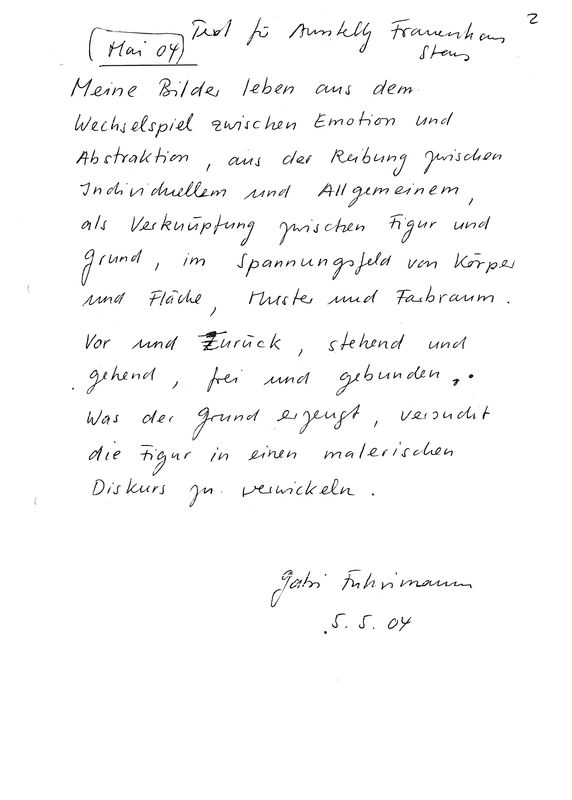 2
(Mai 04) Text für Ausstellg Frauenhaus
Stans
Meine Bilder leben aus dem
Wechselspiel zwischen Emotion und
Abstraktion, aus der Reibung zwischen
Individuellem und Allgemeinem,
als Verknüpfung zwischen Figur und
Grund, im Spannungsfeld von Körper
und Fläche, Muster und Farbraum.
Vor und Zurück, stehend und
gehend, frei und gebunden.
Was der Grund erzeugt, versucht
die Figur in einen malerischen
Diskurs zu verwickeln.
Gabi Fuhrimann
5. 5. 04